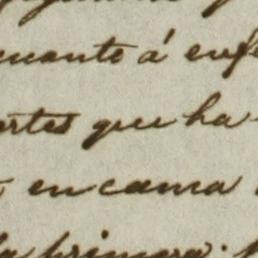 cuanto á enf
ertes que ha
en cama
la primera.